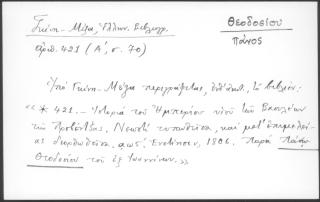 Γκίνη - Μέξα, Ἑλλην. Βιβλιογρ.
ἀριθ. 421 (Α', σ. 70)
Θεοδοσίου
Πάνος
Ὑπὸ Γκίνη - Μέξα περιγράφεται, τὸ βιβλίον:
«* 421. - Ἱστορία τοῦ Ἠμπερίου υἱοῦ τοῦ Βασιλέως
τῆς Προβέντζας. Νεωστὶ τυπωθεῖσα, καὶ μετ' ἐπιμελεί-
ας διορθωθεῖσα. αωϛ'. Ἐνετίησιν, 1806. Παρὰ Πάνῳ
Θεοδοσίου τοῦ ἐξ Ἰωαννίνων.»